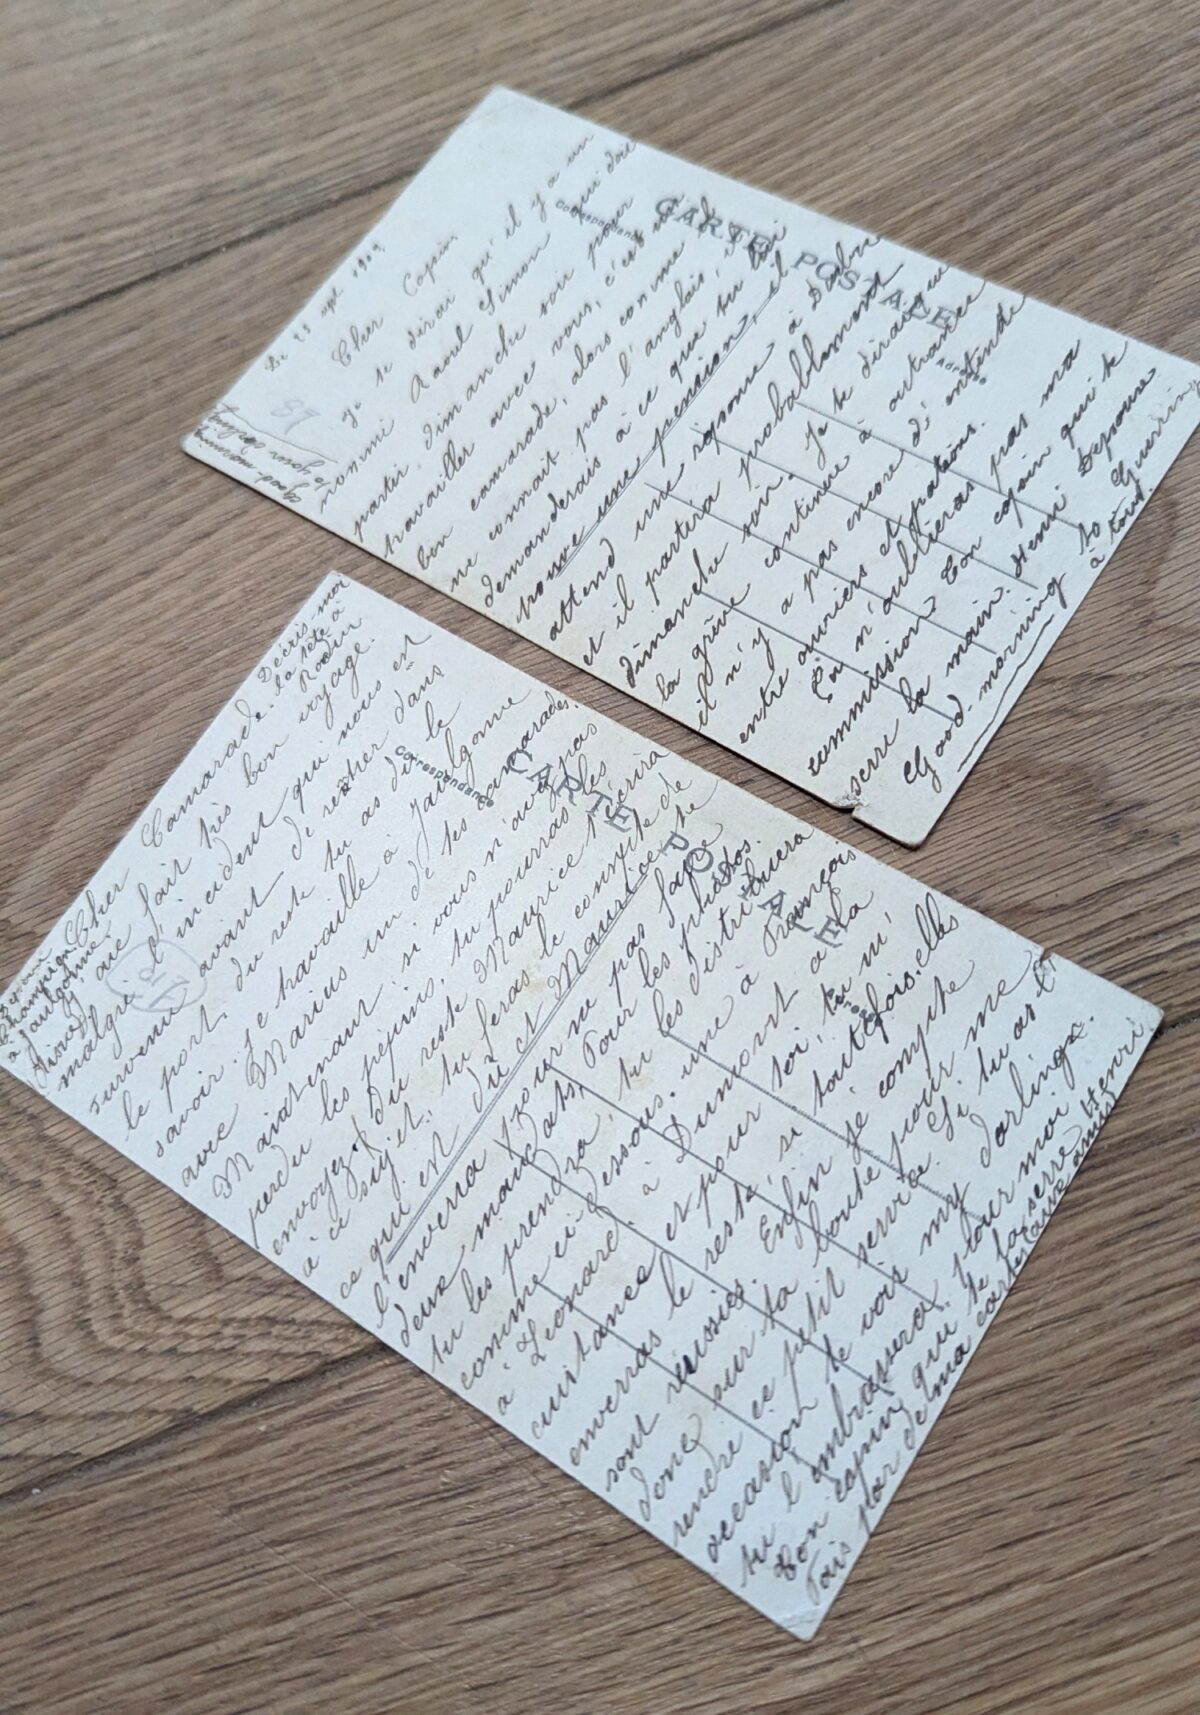 CARTE POSTALE
Correspondance
Adresse
Le 23 sept. 1909.
Cher Copain
je te dirai qu'il y a un
nommé Raoul Simon qui doit
partir dimanche soir pour
travailler avec vous, c'est un
bon camarade, alors comme il
ne connait pas l'anglais, il
demanderais à ce que tu lui
trouve une pension, il
attend une réponse
et il partira probablement
dimanche soir. Je te dirai que
la grève continue à outrance
il n'y a pas encore d'entente
entre ouvriers et patrons.
Tu n'oublieras pas ma
commission Ton copain qui te
serre la main. Henri
Good-morning à tous
good-morning
89
CARTE POSTALE
Correspondance
Adresse
Cher Camarade.
Décris-moi
la fête à
ai fait très bon voyage.
malgré l'incident qui nous en
survenu avant de rentrer dans
le port. Du reste tu as dû le
savoir. Je travaille à Jaulgonne
avec Marius un de tes camarades.
Maintenant si vous n'avez pas
perdu les pépins, tu pourras les
envoyez. Du reste Maurice t'écrira
à ce sujet. tu feras le compte de
ce qui est dû et Maurice te
l'enverra pour ne pas faire
deux mandats, Pour les photos.
tu les prendra, tu les distribuera
comme ci-dessous. une à François
à Léonard. à Dumont à la
cuitance et pour toi, tu m'
enverras le reste, si toutefois elles
sont réussies. Enfin je compte
donc sur ta bonté pour me
rendre ce petit service. Si tu as l'
occasion de voir my darlings.
tu l'embrassera pour moi
Ton copain qui te la serre Henri
Fais par de ma carte aux amis